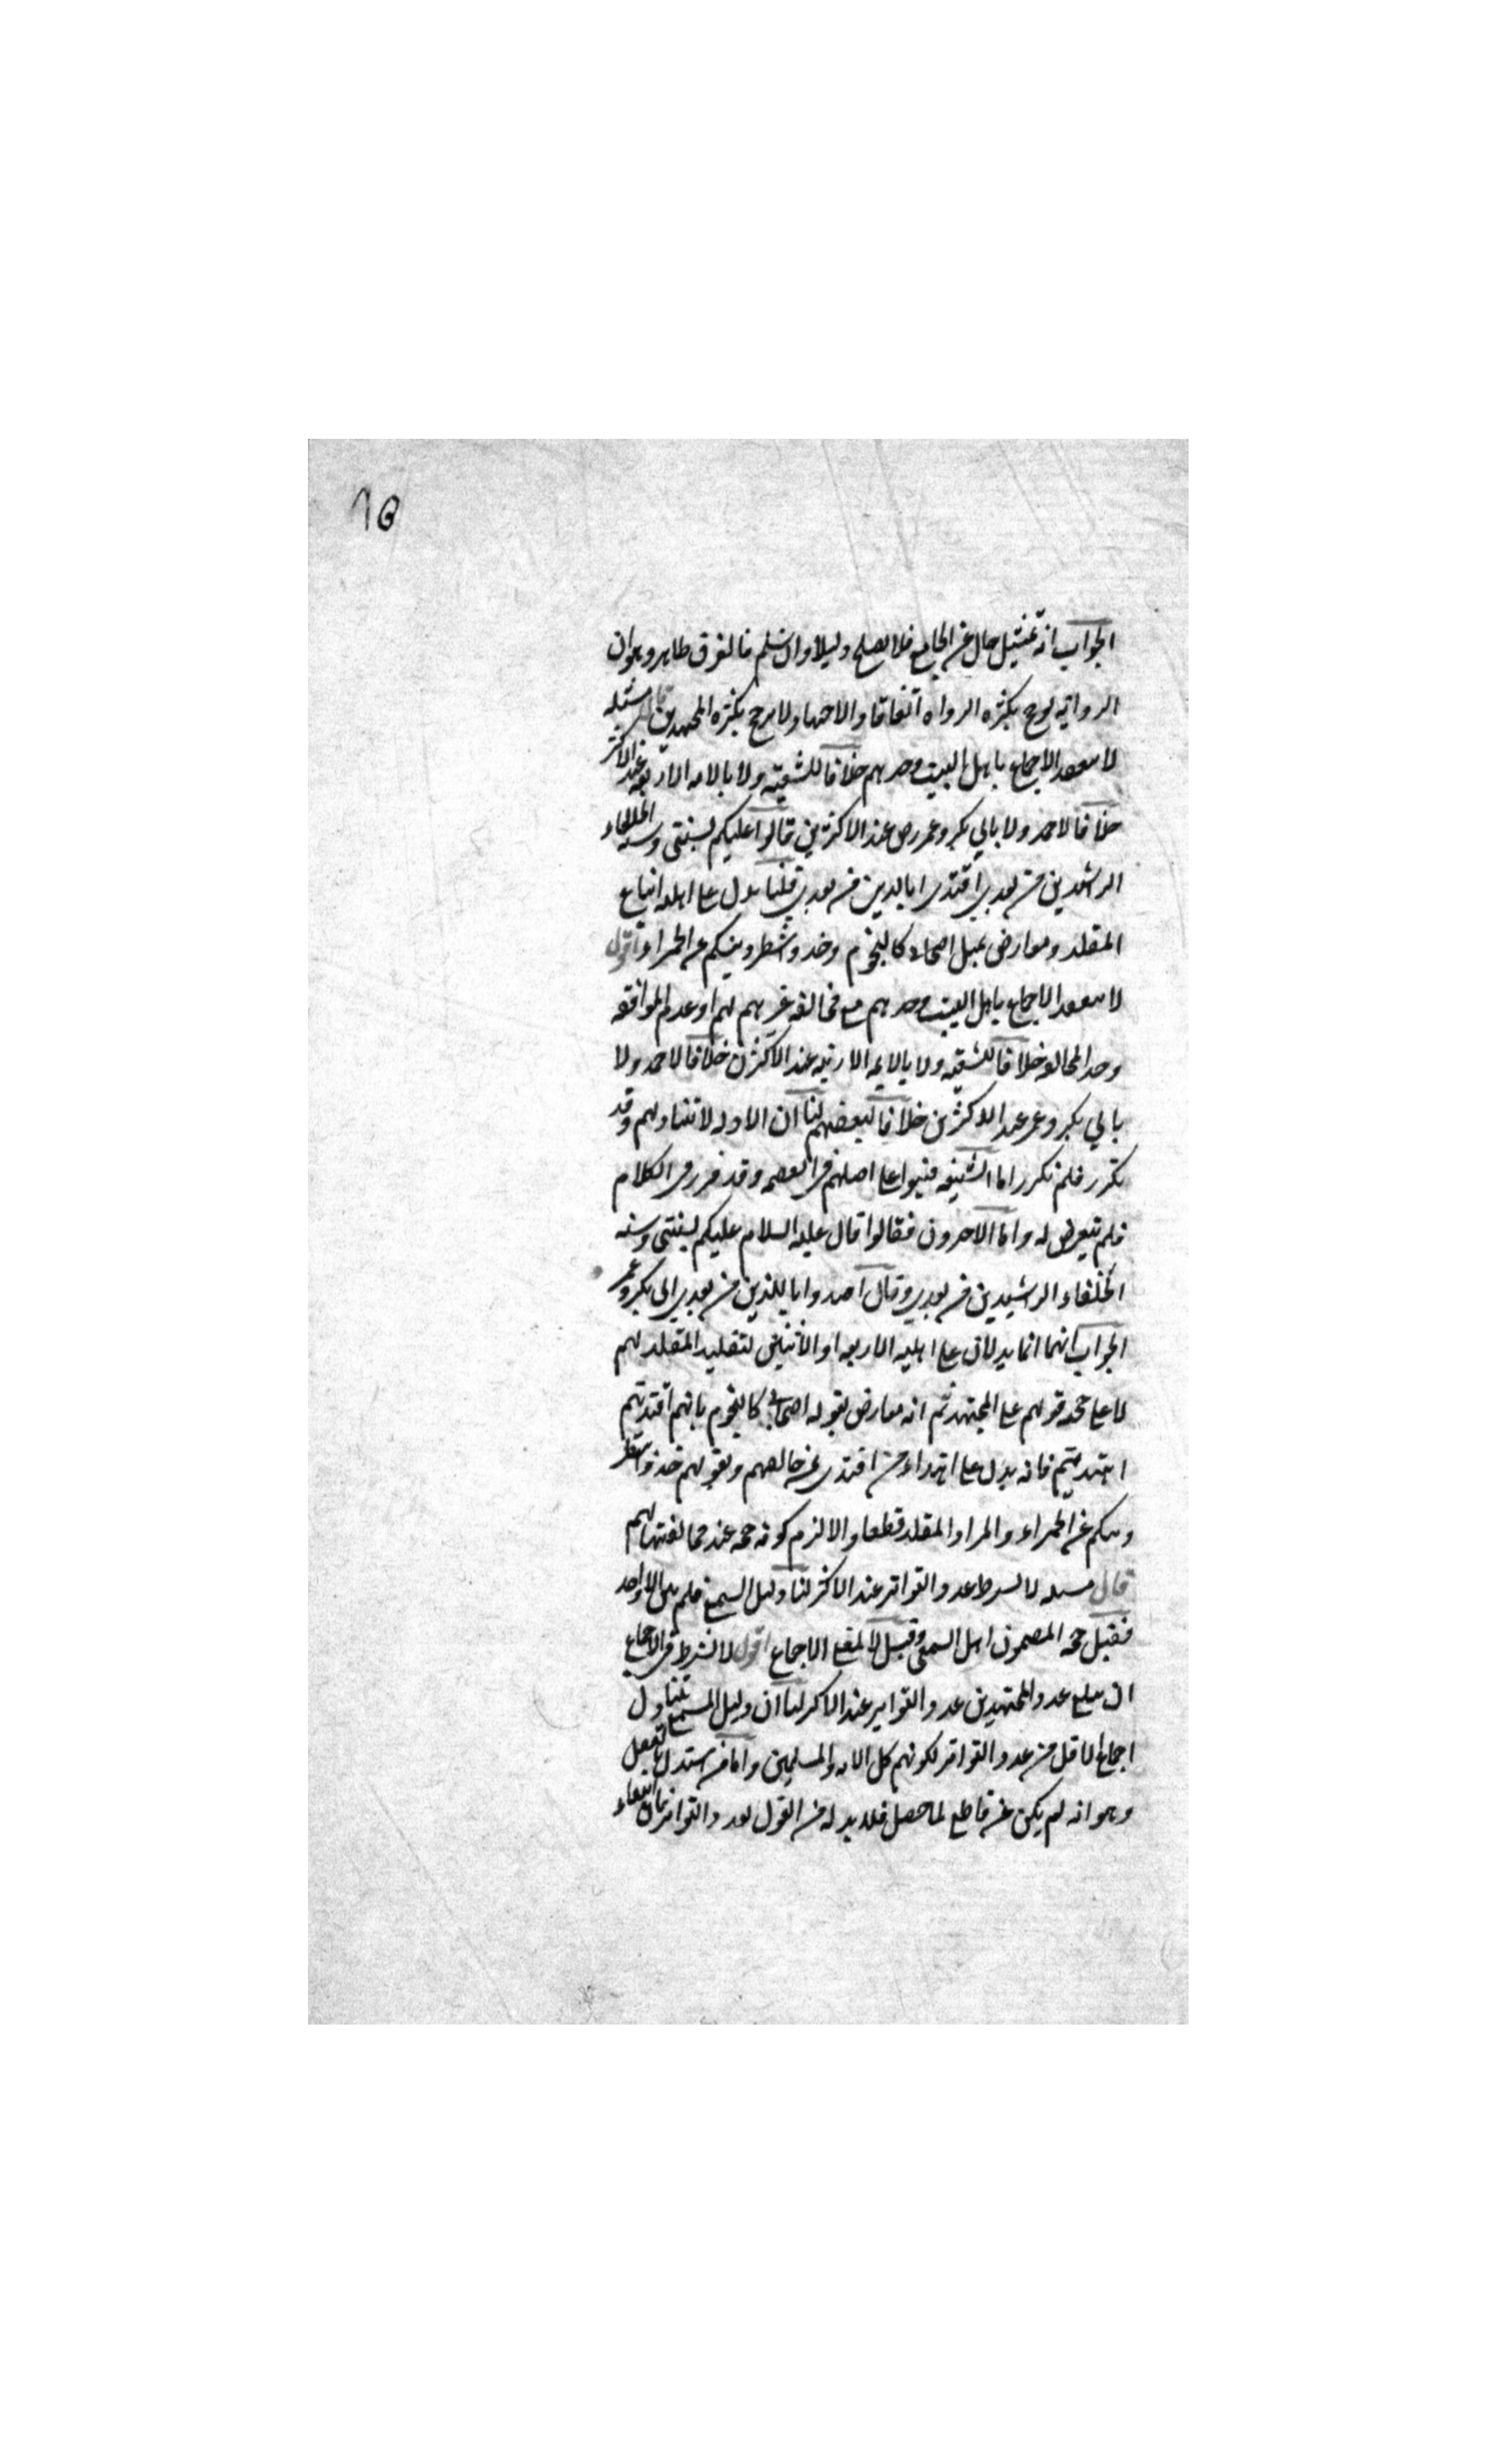 ٦٥
الجواب انه تمثيل خال عن الجامع فلا يصلح دليلا وان سلم فالفرق ظاهر وهو ان
الرواية ترجح بكثرة الرواه اتفاقا والاجتهاد لا يرجح بكثرة المجتهدين قال مسئله
لا ينعقد الاجماع باهل البيت وحدهم خلافا للشيعة ولا بالائمه الاربعه عند الاكثر
خلافا لاحمد ولا بابي بكر وعمر رض عند الاكثرين قالوا عليكم بسنتي وسنه الخلفاء
الراشدين من بعدي اقتدوا بالذين من بعدي قلنا يدل على اهليه اتباع
المقلد ومعارض بمثل اصحابي كالنجوم وخذوا شطر دينكم عن الحمراء اقول
لا ينعقد الاجماع باهل البيت وحدهم مع مخالفه غيرهم لهم او عدم الموافقه
وحد المخالفه خلافا للشيعه ولا بالائمه الاربعه عند الاكثرين خلافا لاحمد ولا
بابي بكر وعمر عند الاكثرين خلافا لبعضهم لنا ان الادله لا تتناولهم وقد
تكرر فلم نكرر اما الشيعه فبنوا على اصلهم في العصمه وقد قرر في الكلام
فلم نتعرض له واما الاخرون فقالوا قال عليه السلام عليكم بسنتي وسنه
الخلفاء الراشدين من بعدي وقال اقتدوا باللذين من بعدي ابي بكر وعمر
الجواب انهما انما يدلان على اهليه الاربعه او الاثنين لتقليد المقلد لهم
لا على حجه قولهم على المجتهد ثم انه معارض بقوله اصحابي كالنجوم بايهم اقتديتم
اهتديتم فانه يدل على اهتداء من اقتدى بمن خالفهم وبقولهم خذوا شطر
دينكم عن الحمراء والمراد المقلد قطعا والا لزم كونه حجه عند مخالفتها لهم
قال مسله لا يشترط عدد التواتر عند الاكثر لنا دليل السمع فلو لم يبق الا واحد
فقيل حجه لمضمون دليل السمعي وقيل لا لمعنى الاجماع اقول لا يشترط في الاجماع
ان يبلغ عدد المجتهدين عدد التواتر عند الاكثر لنا ان دليل السمع تتناول
اجماع الاقل من عدد التواتر لكونهم كل الامه والمسلمين واما من استدل بالعقل
وهو انه لو لم يكن عن قاطع لما حصل فلا بد له من القول بعدد التواتر فان انتفاء